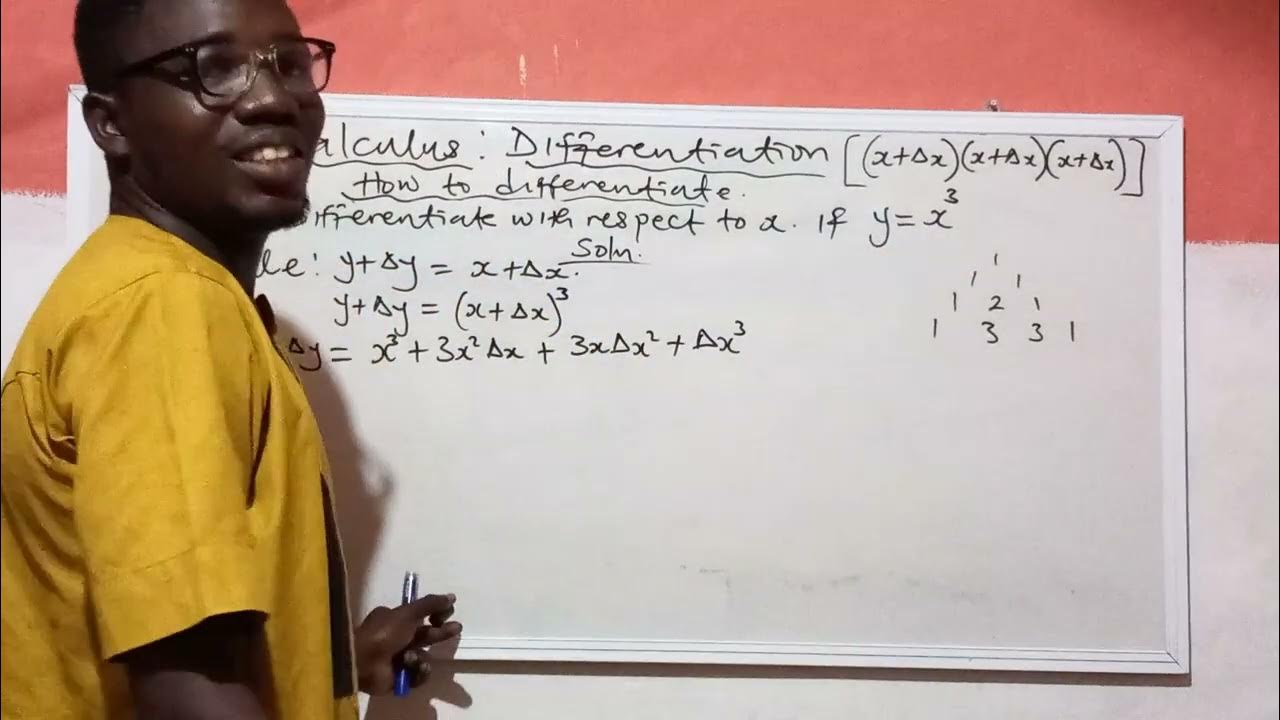 alculus: Differentiation [(x+Δx)(x+Δx)(x+Δx)]
How to differentiate.
ifferentiate with respect to x. If y=x³
Soln.
le: y+Δy = x+Δx.
y+Δy = (x+Δx)³
Δy = x³ + 3x²Δx + 3xΔx² + Δx³
1
1 1
1 2 1
1 3 3 1